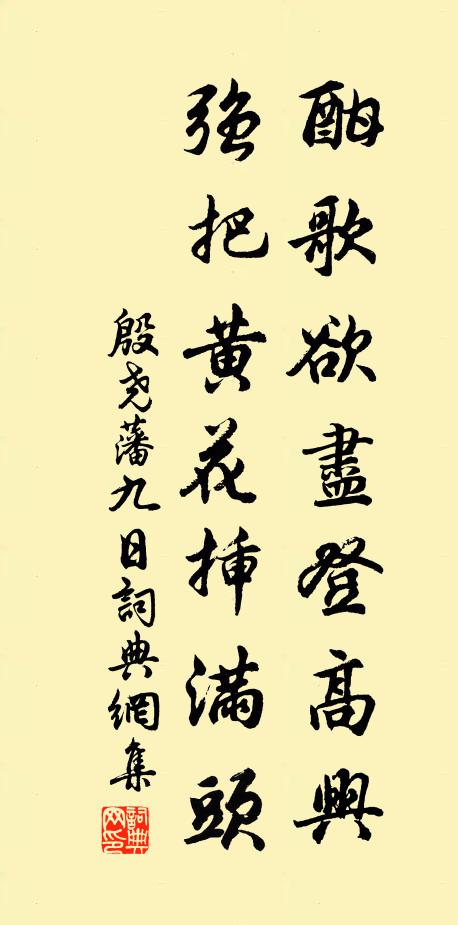 酣歌欲盡登高興
強把黃花插滿頭
殷尭藩九日詞典網集
詞典網印